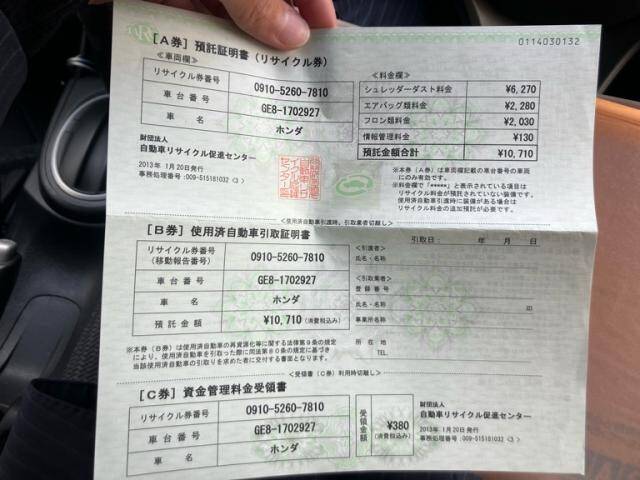 0114030132
[A券] 預託証明書 (リサイクル券)
<車両欄>
リサイクル券番号 0910-5260-7810
車台番号 GE8-1702927
車 名 ホンダ
財団法人
自動車リサイクル促進センター
2013年 1月20日発行
事務処理番号:009-515181032 <3>
<料金欄>
シュレッダーダスト料金 ¥6,270
エアバッグ類料金 ¥2,280
フロン類料金 ¥2,030
情報管理料金 ¥130
預託金額合計 ¥10,710
※本券(A券)は車両欄記載の車台番号の車両
にのみ有効です。
※料金欄で「*****」と表示されている項目は
リサイクル料金が預託されていない装備です。
使用済自動車引渡時に装備がある場合は
リサイクル料金の追加預託が必要です。
<使用済自動車引渡時、引取業者切離し>
[B券] 使用済自動車引取証明書
引取日: 年 月 日
リサイクル券番号
(移動報告番号) 0910-5260-7810
車台番号 GE8-1702927
車 名 ホンダ
預託金額 ¥10,710 (消費税込み)
<引渡者>
氏名・名称
<引取業者>
登録番号
氏名・名称 印
事業所名称
所在地
TEL.
※本券(B券)は使用済自動車の再資源化等に関する法律第9条の規定
により、使用済自動車を引取った際に同法第80条の規定に基づき
当該使用済自動車の引取りを求めた者に交付する書面となります。
<受領書(C券)利用時切離し>
[C券] 資金管理料金受領書
リサイクル券番号 0910-5260-7810
車台番号 GE8-1702927
車 名 ホンダ
受領金額 ¥380 (消費税込み)
財団法人
自動車リサイクル促進センター
2013年 1月20日発行
事務処理番号:009-515181032 <3>